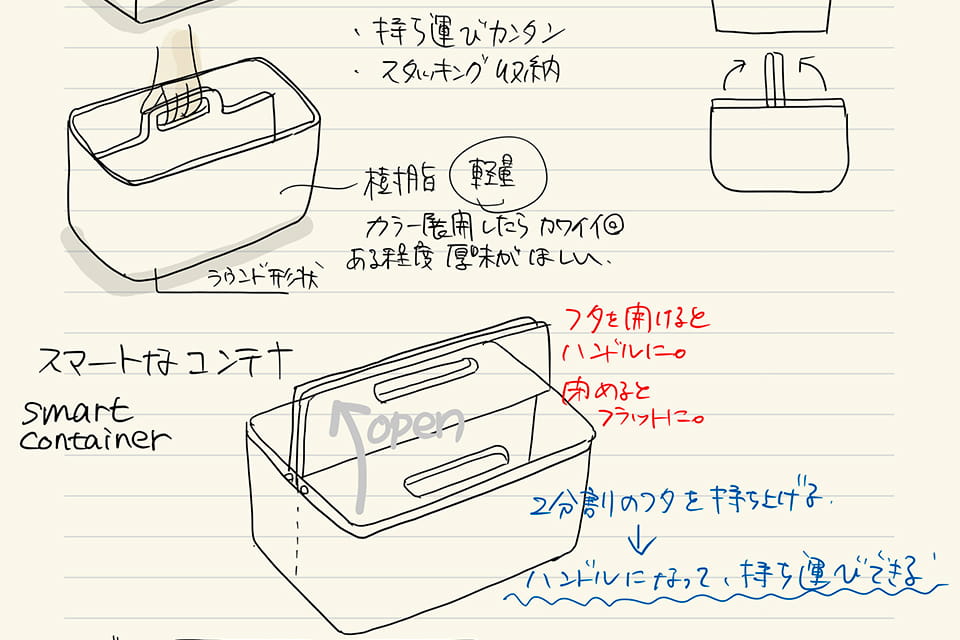 ・持ち運びカンタン
・スタッキング収納
樹脂 軽量
カラー展開したらカワイイ◎
ある程度厚味がほしい、
ラウンド形状
フタを開けると
ハンドルに。
スマートなコンテナ
閉めると
フラットに。
smart
container
open
2分割のフタを持ち上げる.
↓
ハンドルになって、持ち運びできる